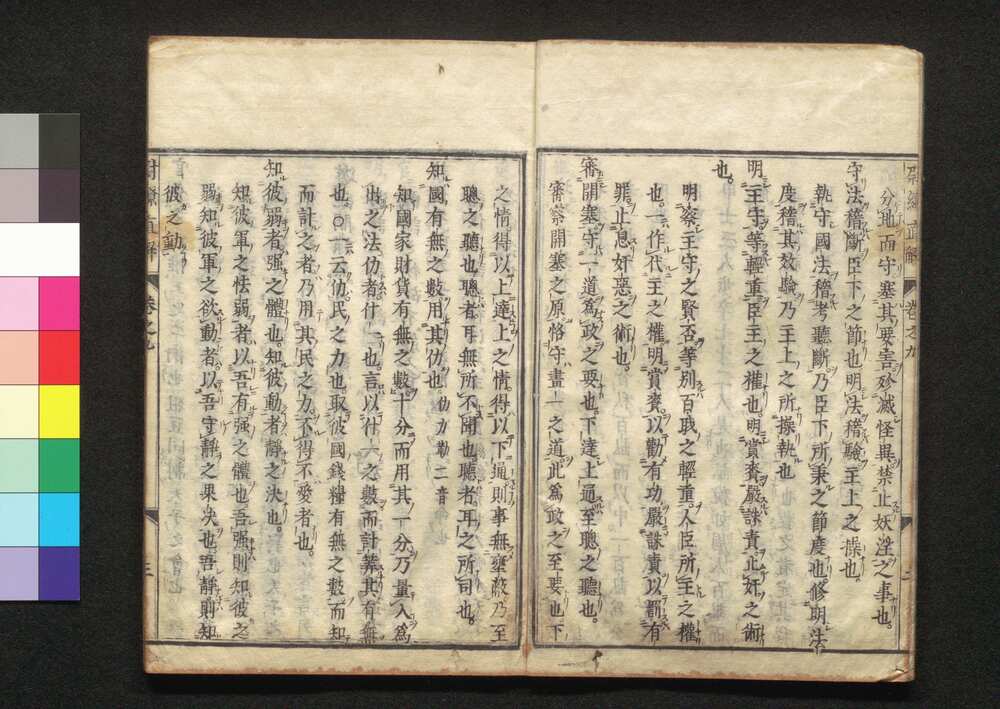 尉繚直解 卷之九
分地而守塞其要害殄滅怪異禁止妖淫之事也
守法稽斷臣下之節也明法稽驗主上之操也
執守國法稽考聽斷乃臣下所秉之節度也修明法
度稽其效驗乃主上之所操執也
明主守等輕重臣主之權也明賞賚嚴誅責止奸之術
也
明察主守之賢否等別百職之輕重人臣所主之權
也一作代主之權明賞賚以勸有功嚴誅責以罰有
罪止息奸惡之術也
審開塞守一道爲政之要也下達上通至聰之聽也
審察開塞之原恪守畫一之道此爲政之至要也下
之情得以上達上之情得以下通則事無壅蔽乃至
聰之聽也聰者耳無所不聞也聽者耳之所司也
知國有無之數用其仂也 仂力勒二音
知國家財貨有無之數十分而用其一分乃量入爲
出之法仂者什一也言以什一之數而計筭其有無
也○一云仂民之力也取彼國錢糧有無之數而知
而計之者乃用其民之力不得不愛者也
知彼弱者强之體也知彼動者靜之決也
知彼軍之怯弱者以吾有强之體也吾强則知彼之
弱知彼軍之欲動者以吾守靜之果決也吾靜則知
彼之動
尉繚直解 卷之九 三